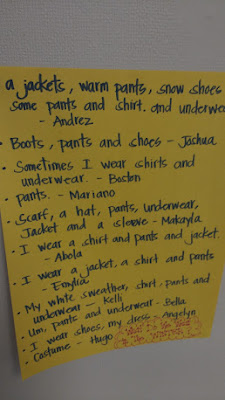 a jackets, warm pants, snow shoes
some pants and shirt. and underwea
- Andrez
• Boots, pants and shoes - Joshua
• Sometimes I wear shirts and
underwear. - Boston
• pants. - Mariano
• Scarf, a hat, pants, underwear,
Jacket and a sleeve - Makayla
• I wear a shirt and pants and jacket.
- Abola
• I wear a jacket, a shirt and pants
- Emylia
• My white sweather, shirt, pants and
underwear - Kelli
• Um, pants and underwear - Bella
• I wear shoes, my dress - Angelyn
• Costume - Hugo